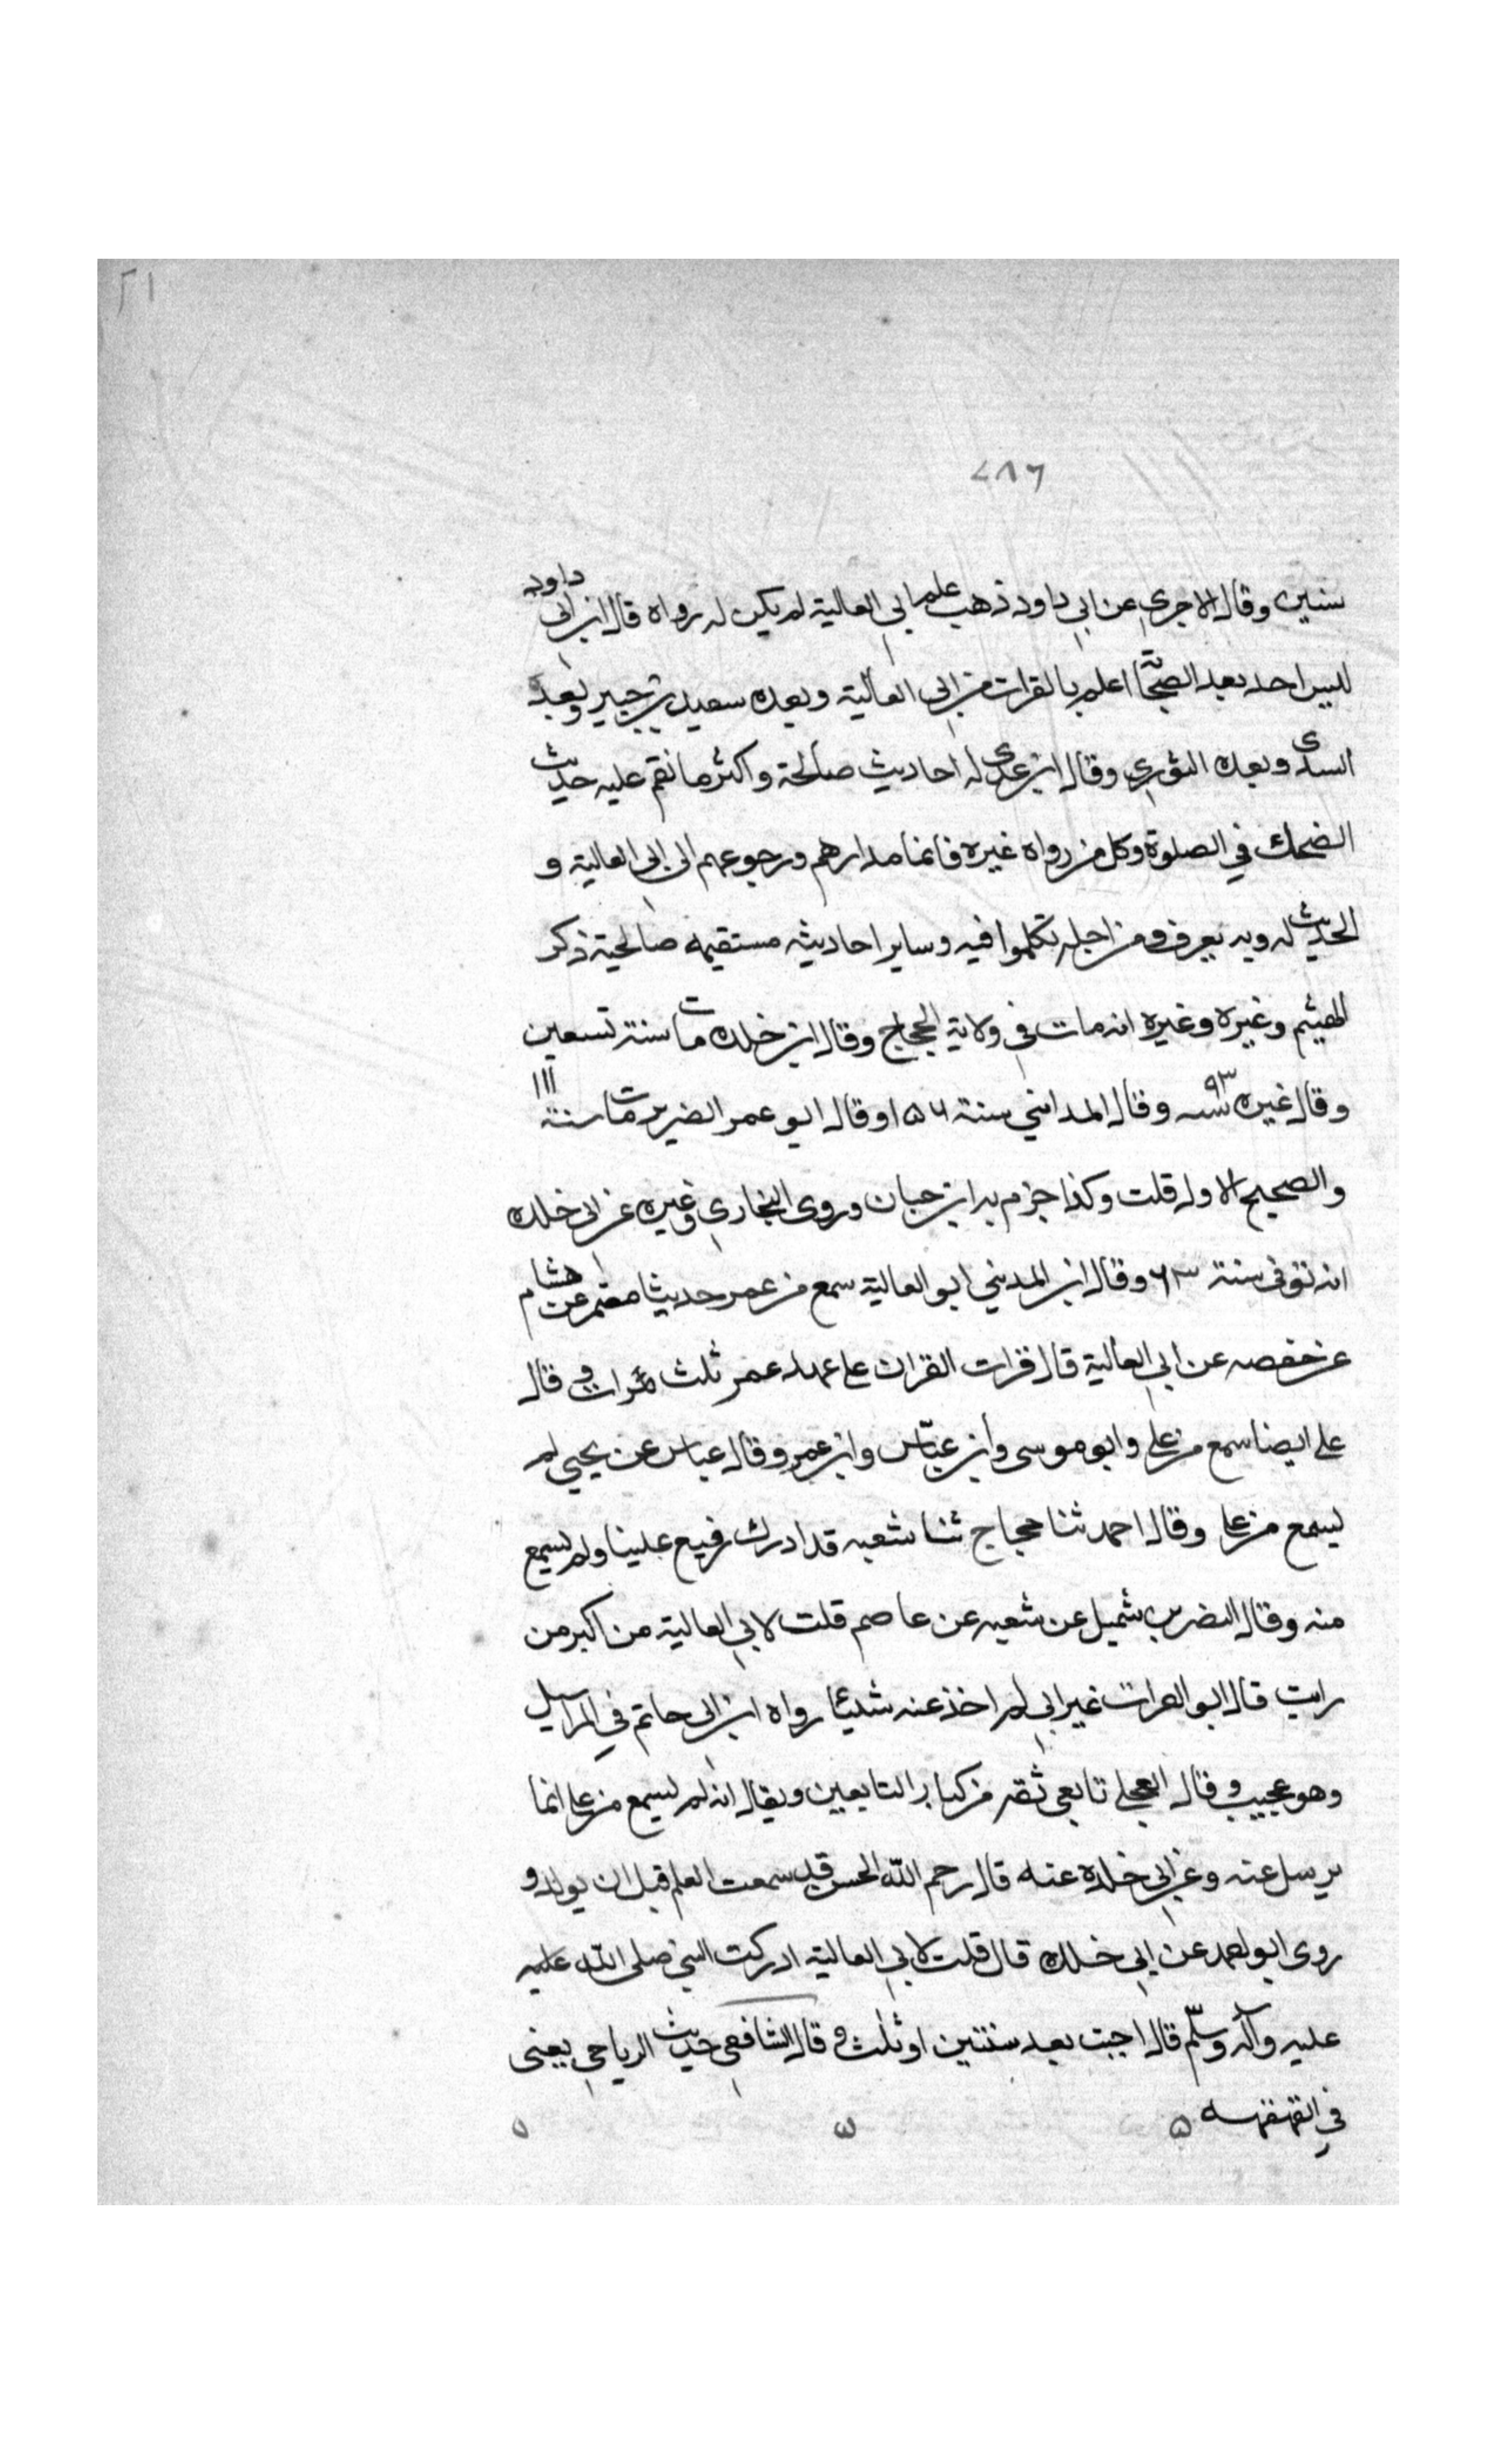 ٢١
٧٨٦
سنين وقال الاجري عن ابي داود ذهب علم ابي العالية لم يكن له رواه قال ابن ابي داود
ليس احد بعد الصحابة اعلم بالقرات من ابي العالية وبعده سعيد بن جبير وبعد
السدى وبعده الثوري وقال ابن عدى له احاديث صالحة واكثر ما نقم عليه حديث
الضحك في الصلوة وكل من رواه غيره فانما مدارهم ورجوعهم الى ابي العالية و
الحديث له وبه يعرف ومن اجله تكلموا فيه وساير احاديثه مستقيمه صالحية ذكر
الهيثم وغيره وغيره انه مات في ولاية الحجاج وقال ابن خلده مات سنة تسعين
وقال غيره سنه ٩٣ وقال المدائني سنة ١٥٦ وقال ابو عمر الضرير مات سنة ١١١
والصحيح الاول قلت وكذا جزم به ابن حبان وروى البخاري وغيره عن ابي خلده
انه توفى سنة ٦٣ وقال ابن المديني ابو العالية سمع من عمر حديثا معتمر عن هشام
عن حفصه عن ابي العالية قال قرات القران على عهد عمر ثلث مرات وقال
على ايضا سمع من على وابو موسى وابن عبّاس وابن عمر وقال عباس عن يحيي لم
يسمع من على وقال احمد ثنا حجاج ثنا شعبه قد ادرك رفيع علينا ولم يسمع
منه وقال النضر بن شميل عن شعبه عن عاصم قلت لابي العالية من اكبر من
رايت قال ابو العرات غير ابي لم اخذ عنه شيئا رواه ابن ابي حاتم في المراسيل
وهو عجيب وقال العجلي تابعي ثقه من كبار التابعين ويقال انه لم يسمع من على انما
يرسل عنه وعن ابي خلده عنه قال رحم الله الحسن قد سمعت العلم قبل ان يولد و
روى ابو احمد عن ابي خلده قال قلت لابي العالية ادركت النبي صلى الله عليه
عليه وآله وسلّم قال اجبت بعد سنتين او ثلث وقال الشافعي حديث الرياحي يعنى
في القهقهه ٥ ٥ ٥